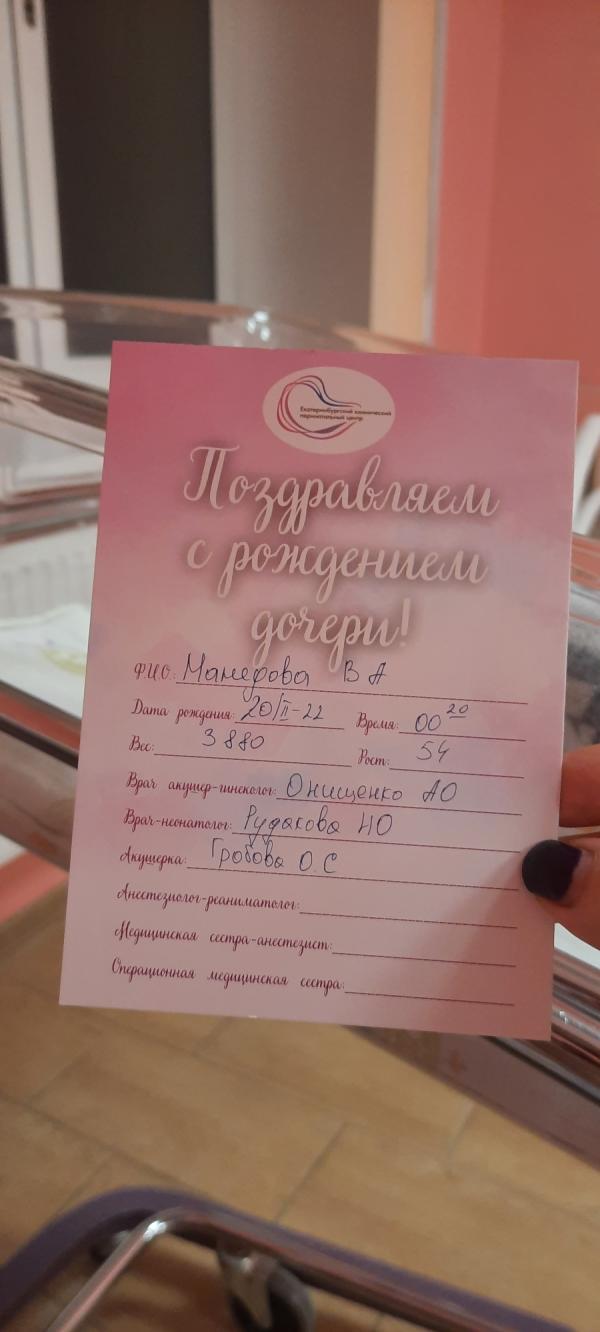 Екатеринбургский клинический
перинатальный центр
Поздравляем
с рождением
дочери!
Ф.И.О.: Манерова В А
Дата рождения: 20/II-22 Время: 00 20
Вес: 3 880 Рост: 54
Врач акушер-гинеколог: Онищенко АО
Врач-неонатолог: Рудакова НО
Акушерка: Гробова О.С
Анестезиолог-реаниматолог:
Медицинская сестра-анестезист:
Операционная медицинская сестра: